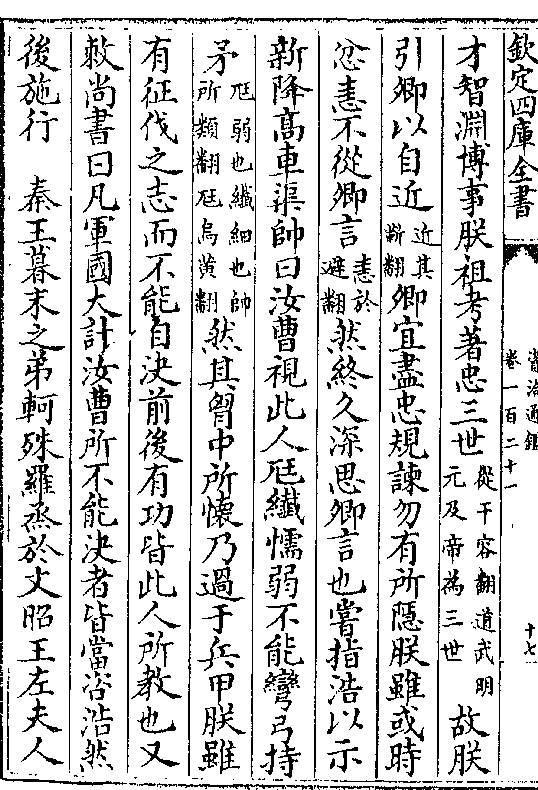 欽定四庫全書
資治通鑑
卷一百二十一
十七
才智淵博事朕祖考著忠三世從干容翻道武明元及帝為三世故朕
引卿以自近近其靳翻卿宜盡忠規諫勿有所隱朕雖或時
忿恚不從卿言恚於避翻然終久深思卿言也嘗指浩以示
新降髙車渠帥曰汝曹視此人尫纖懦弱不能彎弓持
矛尫弱也纖細也帥所類翻尫烏黄翻然其胷中所懷乃過于兵甲朕雖
有征伐之志而不能自決前後有功皆此人所教也又
敕尚書曰凡軍國大計汝曹所不能決者皆當咨浩然
後施行　秦王暮末之弟軻殊羅烝於文昭王左夫人